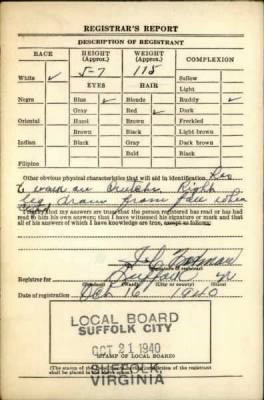 REGISTRAR'S REPORT
DESCRIPTION OF REGISTRANT
RACE HEIGHT (Approx.) WEIGHT (Approx.) COMPLEXION
White ✓ 5-7 115 Sallow
EYES HAIR Light
Negro Blue ✓ Blonde Ruddy ✓
Gray Red ✓ Dark
Oriental Hazel Brown Freckled
Brown Black Light brown
Indian Black Gray Dark brown
Bald Black
Filipino
Other obvious physical characteristics that will aid in identification Has
to walk on Crutches. Right
leg drawn from fall when
I certify that my answers are true; that the person registered has read or has had
read to him his own answers; that I have witnessed his signature or mark and that
all of his answers of which I have knowledge are true, except as follows:
Registrar for Suffolk Va
Date of registration Oct 16 1940
LOCAL BOARD
SUFFOLK CITY
OCT 21 1940
(STAMP OF LOCAL BOARD)
SUFFOLK,
VIRGINIA